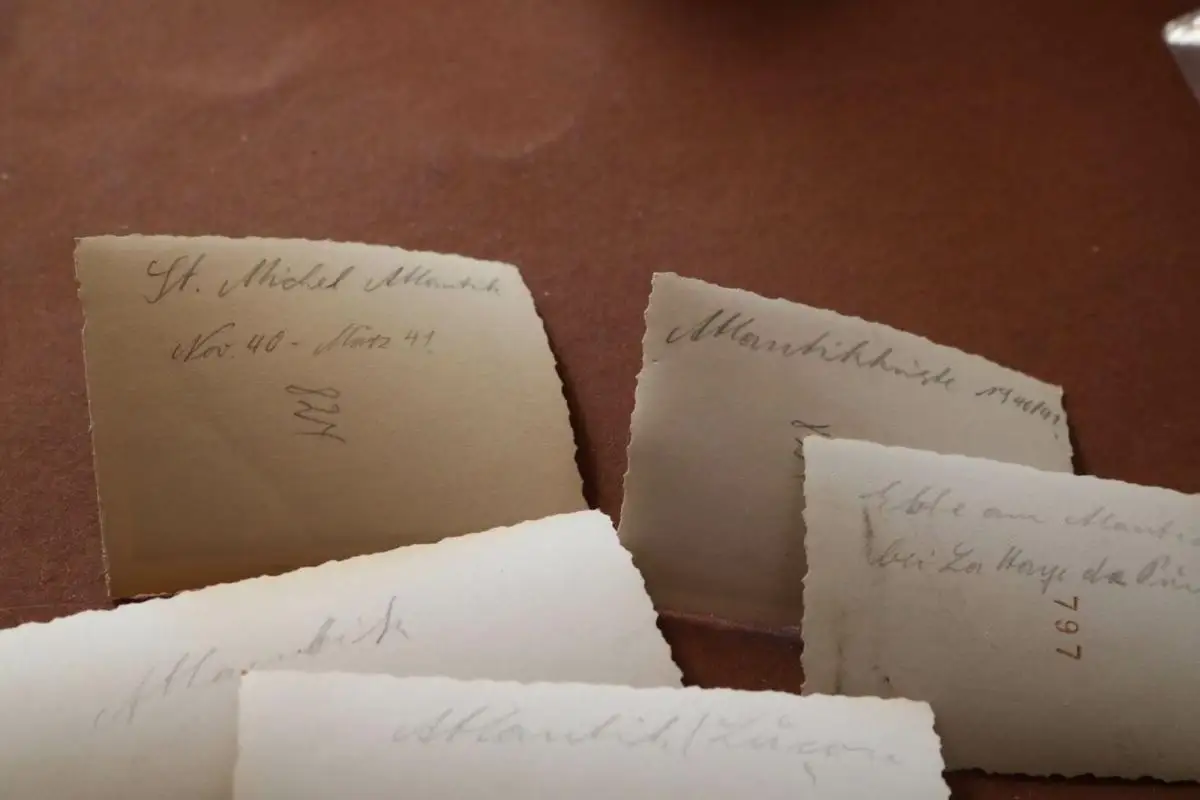 St. Michel Atlantik
Nov. 40 - März 41.
Atlantikküste 1940/41.
Ebbe am Atlanti
bei La Haye du Pui
797
Atlantik
Atlantik (Luçon